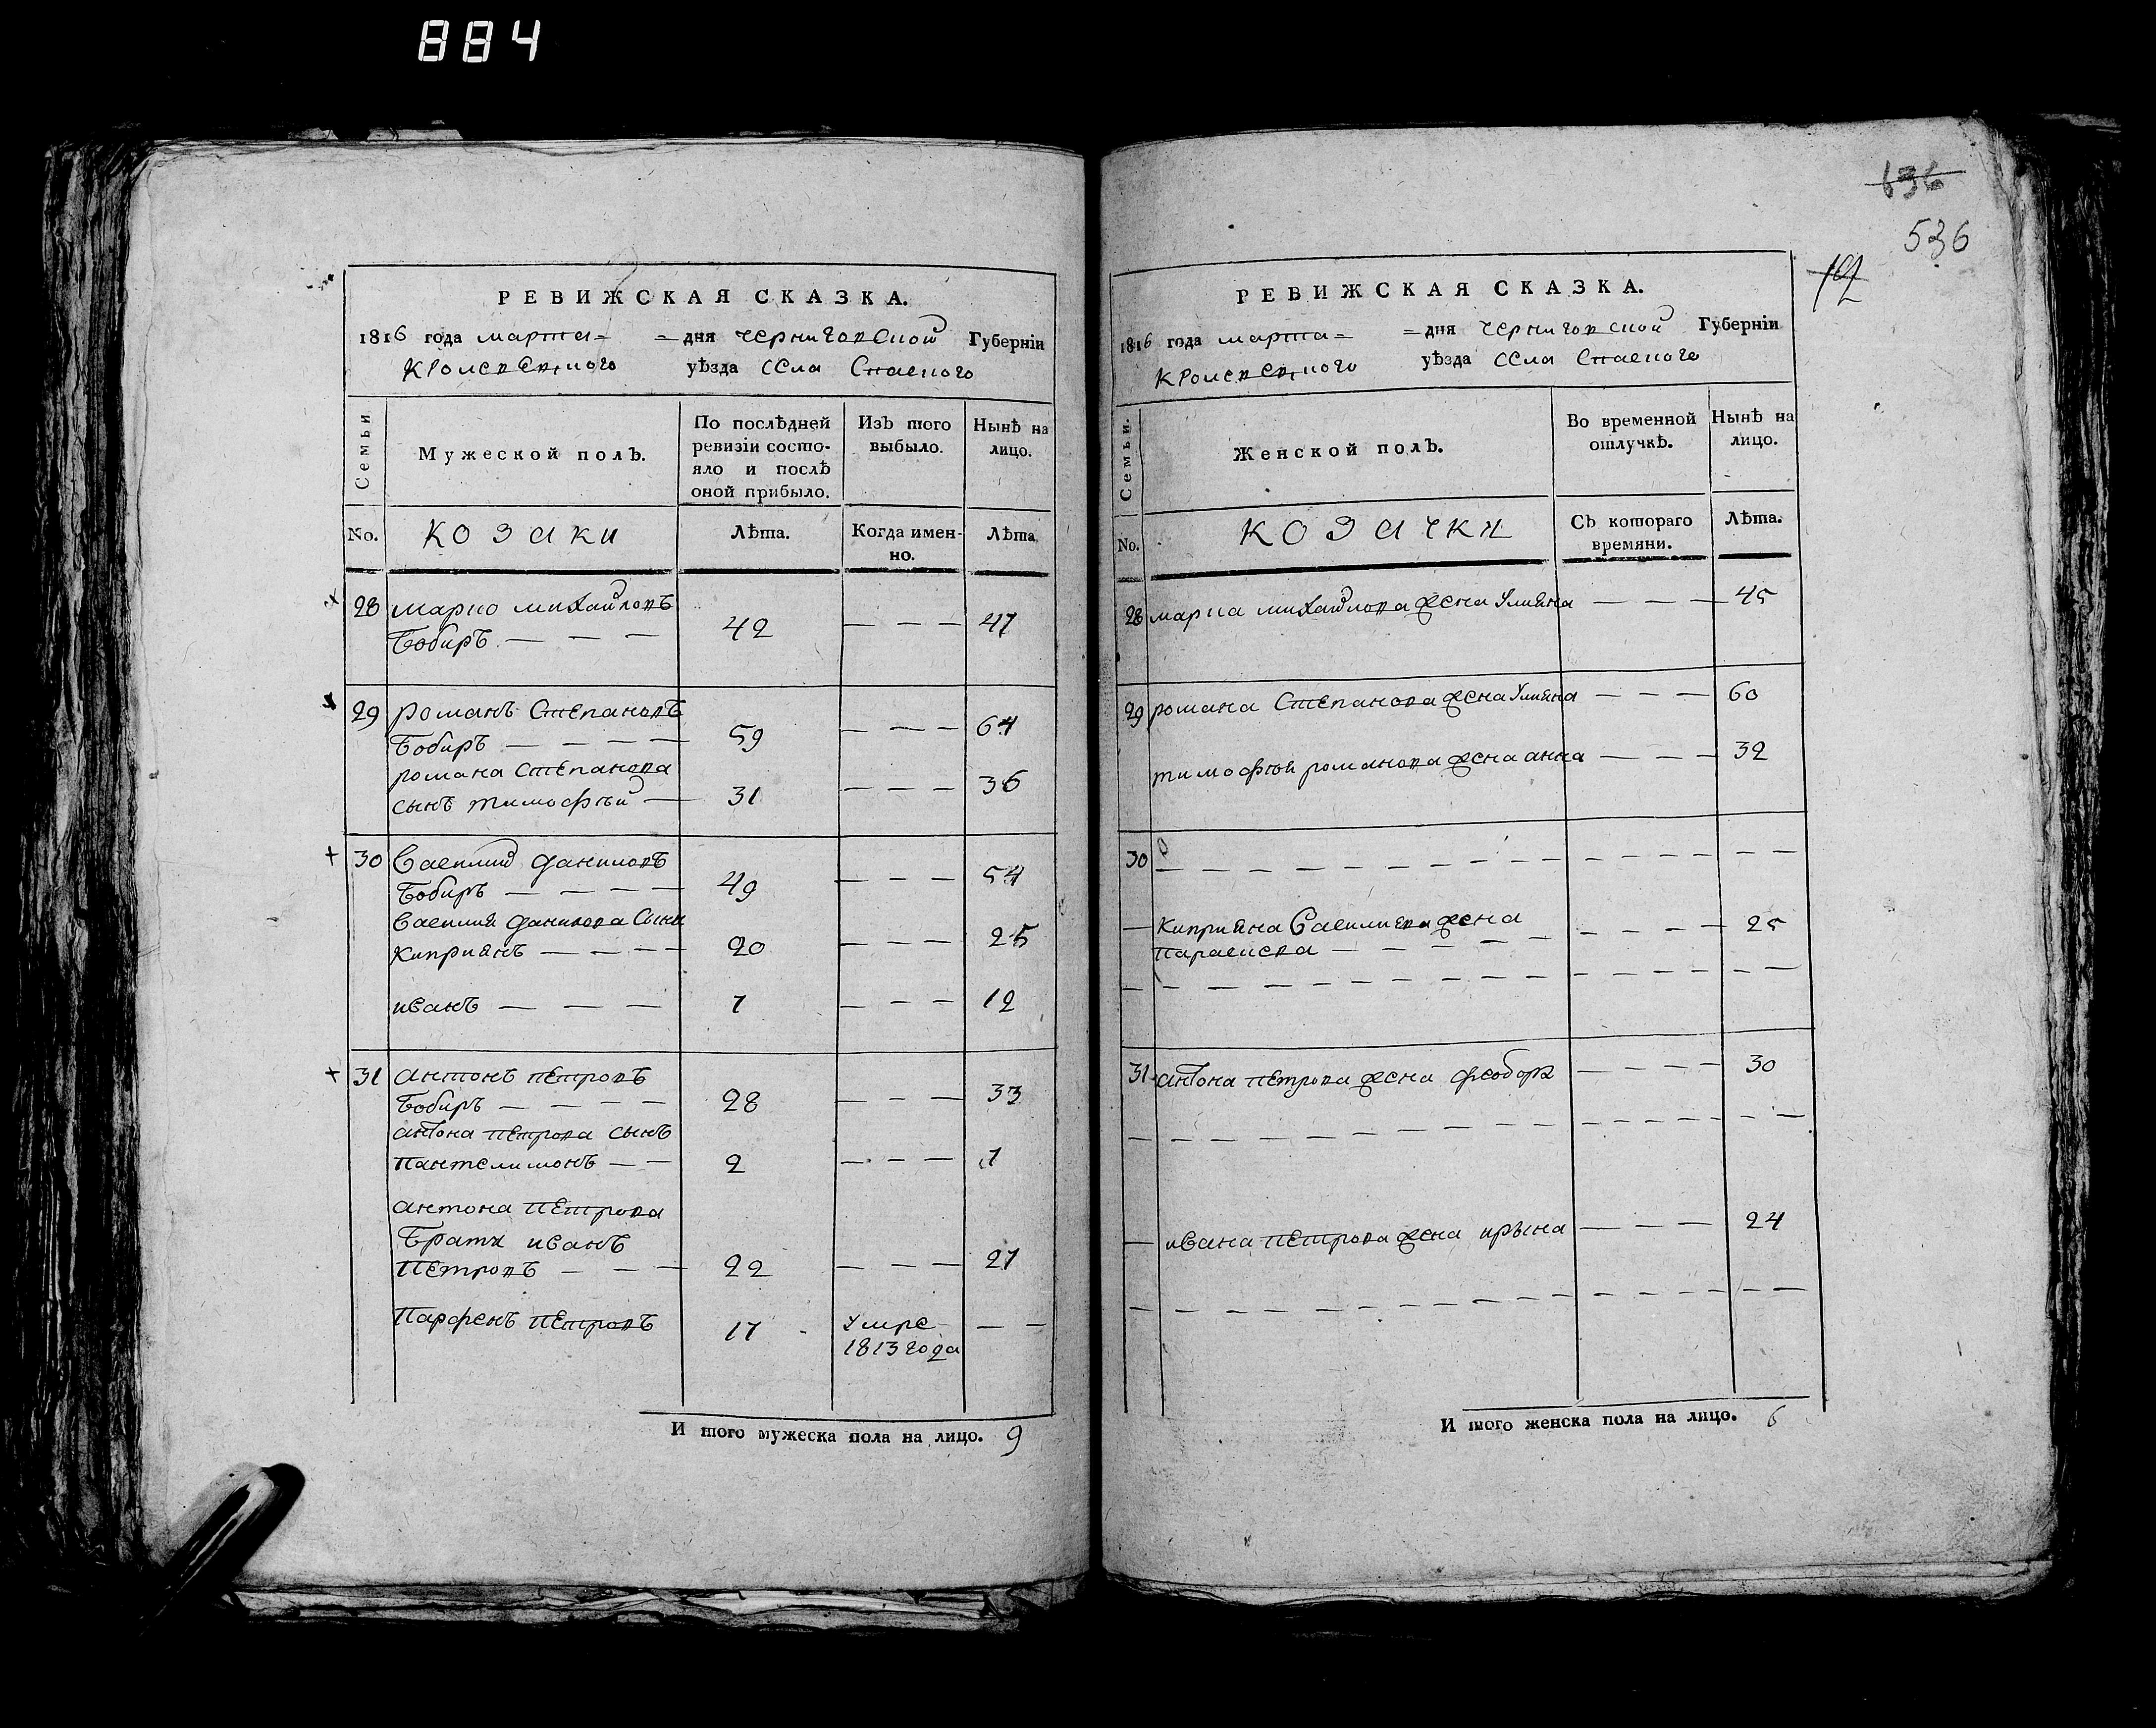 884
РЕВИЖСКАЯ СКАЗКА.
1816 года марта = = дня черниговской Губерніи
кролевецкого уѣзда села Спаского
Семьи
Мужеской полъ.
По послѣдней ревизіи состо-
яло и послѣ
оной прибыло.
Изъ того
выбыло.
Нынѣ на
лицо.
No.
козаки
Лѣта.
Когда имен-
но.
Лѣта
28 марко михайловъ
Бобиръ — — — 42 — — — 47
29 романъ степановъ
Бобиръ — — — — 59 — — — 64
романа степанова
сынъ тимофѣй — 31 — — — 36
30 василий даниловъ
Бобиръ — — — — 49 — — — 54
василия данилова сыны
киприянъ — — — — 20 — — — 25
иванъ — — — 7 — — — 12
31 антонъ петровъ
Бобиръ — — — — 28 — — — 33
антона петрова сынъ
пантелимонъ — — 2 — — — 7
антона петрова
братя иванъ
петровъ — — — 22 — — — 27
парфенъ петровъ 17 умре — —
1813 года
И того мужеска пола на лицо. 9
636
536
РЕВИЖСКАЯ СКАЗКА.
1816 года марта = = дня черниговской Губерніи
кролевецкого уѣзда села Спаского
Семьи.
Женской полъ.
Во временной
отлучкѣ.
Нынѣ на
лицо.
No.
козачки
Съ котораго
времяни.
Лѣта.
28 марка михайлова жена улияна — — — 45
29 романа степанова жена улияна — — — 60
тимофѣя романова жена анна — — — 32
30 — — — — — — — — — — — — — — — —
— киприяна василиева жена — — — — 25
параскева — — — — —
— — — — — — — — — — — — — — — —
31 антона петрова жена феодора — — — — 30
— — — — — — — — — — — — — — — —
— ивана петрова жена ирына — — — 24
— — — — — — — — — — — — — — — —
И того женска пола на лицо. 6